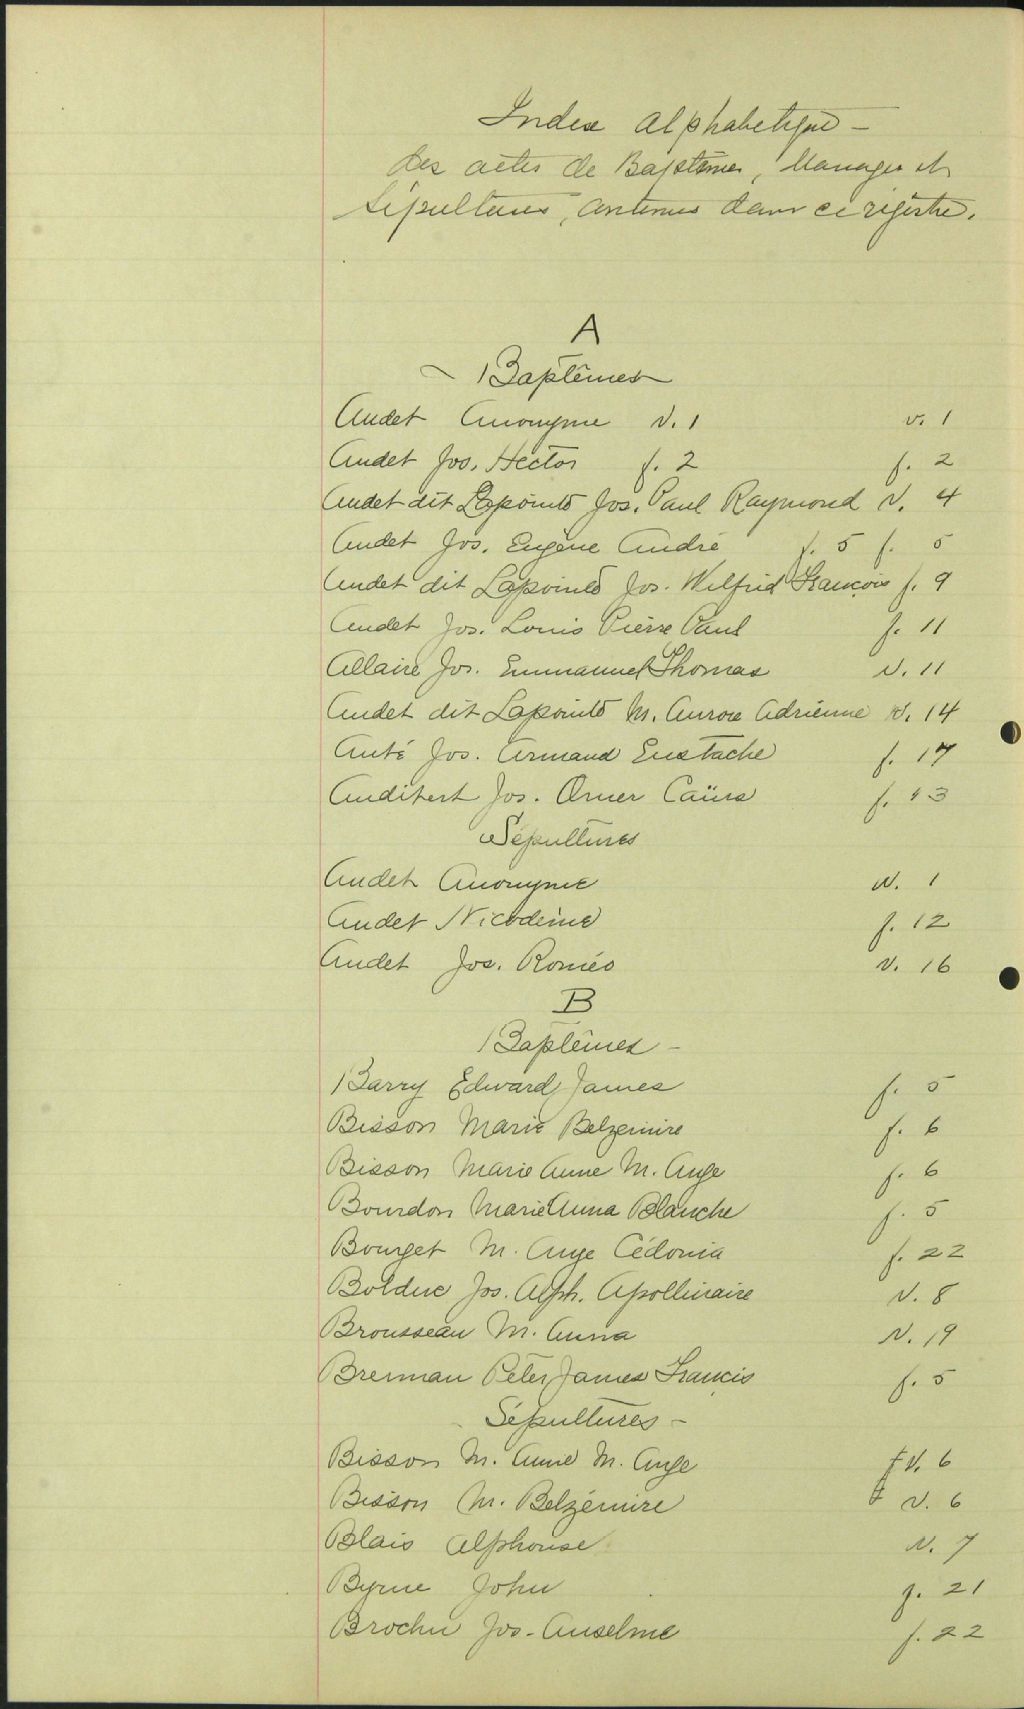 Index alphabetique -
des actes de Baptêmes, Mariages et
Sépultures, contenus dans ce régistre.
A
Baptêmes
Audet Anonyme v. 1 v. 1
Audet Jos. Hector f. 2 f. 2
Audet dit Lapointe Jos. Paul Raymond v. 4
Audet Jos. Eugène André f. 5 f. 5
Audet dit Lapointe Jos. Wilfrid François f. 9
Audet Jos. Louis Pierre Paul f. 11
Allaire Jos. Emmanuel Thomas v. 11
Audet dit Lapointe M. Aurore Adrienne v. 14
Auté Jos. Armand Eustache f. 17
Audibert Jos. Omer f.
Sépultures
Audet Anonyme v. 1
Audet Nicodème f. 12
Audet Jos. Roméo v. 16
B
Baptêmes -
Barry Edward James f. 5
Bisson Marie Belzemire f. 6
Bisson Marie Anne M. Ange f. 6
Bourdon Marie Anna Blanche f. 5
Bourget M. Ange Cédonia f. 22
Bolduc Jos. Alph. Apollinaire v. 8
Brousseau M. Anna v. 19
Brennan Peter James Francis f. 5
- Sépultures -
Bisson M. Anne M. Ange v. 6
Bisson M. Belzémire v. 6
Blais Alphonse v. 7
Byrne John f. 21
Brochu Jos. Anselme f. 22